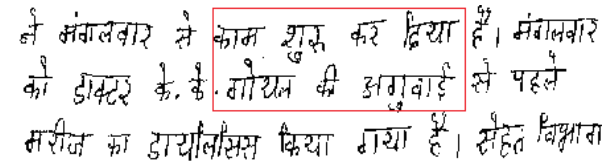 ने मंगलवार से काम शुरू कर दिया है। मंगलवार
को डाक्टर के. के. गोयल की अगुवाई से पहले
मरीज का डायलिसिस किया गया है। सेहत विभाग